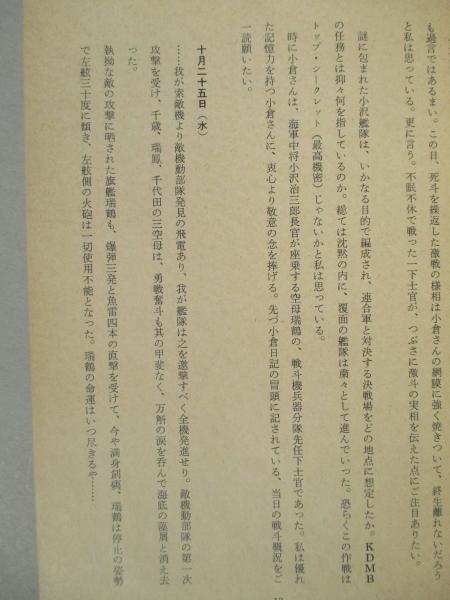 も過言ではあるまい。この日、死斗を繰返した激戦の様相は小倉さんの網膜に強く焼きついて、終生離れないだろう
と私は思っている。更に言う。不眠不休で戦った一下士官が、つぶさに激斗の実相を伝えた点にご注目ありたい。
謎に包まれた小沢艦隊は、いかなる目的で編成され、連合軍と対決する決戦場をどの地点に想定したか。KDMB
の任務とは抑々何を指しているのか。総ては沈黙の内に、覆面の艦隊は粛々として進んでいった。恐らくこの作戦は
トップ・シークレット（最高機密）じゃないかと私は思っている。
時に小倉さんは、海軍中将小沢治三郎長官が座乗する空母瑞鶴の、戦斗機兵器分隊先任下士官であった。私は優れ
た記憶力を持つ小倉さんに、衷心より敬意の念を捧げる。先づ小倉日記の冒頭に記されている、当日の戦斗概況をご
一読願いたい。
十月二十五日（水）
……我が索敵機より敵機動部隊発見の飛電あり、我が艦隊は之を邀撃すべく全機発進せり。敵機動部隊の第一次
攻撃を受け、千歳、瑞鳳、千代田の三空母は、勇戦奮斗も其の甲斐なく、万斛の涙を呑んで海底の藻屑と消え去
った。
執拗な敵の攻撃に晒された旗艦瑞鶴も、爆弾三発と魚雷四本の直撃を受けて、今や満身創痍、瑞鶴は停止の姿勢
で左舷三十度に傾き、左舷側の火砲は一切使用不能となった。瑞鶴の命運はいつ尽きるや……